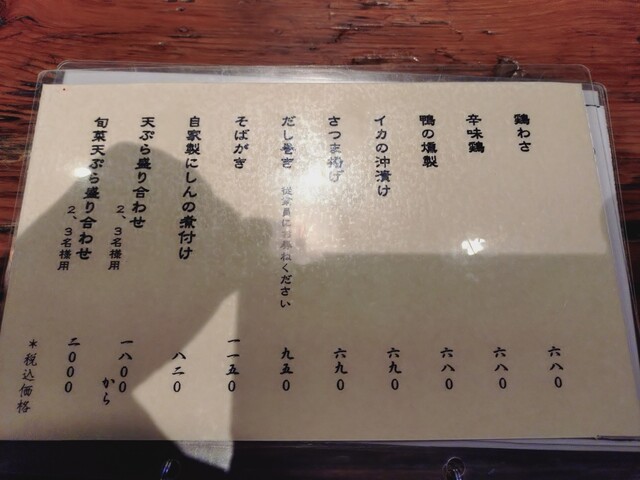 鶏わさ 六八〇
辛味鶏 六八〇
鴨の燻製 六八〇
イカの沖漬け 六九〇
さつま揚げ 六九〇
だし巻き 従業員にお尋ねください 九五〇
そばがき 一一五〇
自家製にしんの煮付け 八二〇
天ぷら盛り合わせ 2、3名様用 一八〇〇から
旬菜天ぷら盛り合わせ 2、3名様用 二〇〇〇
*税込価格